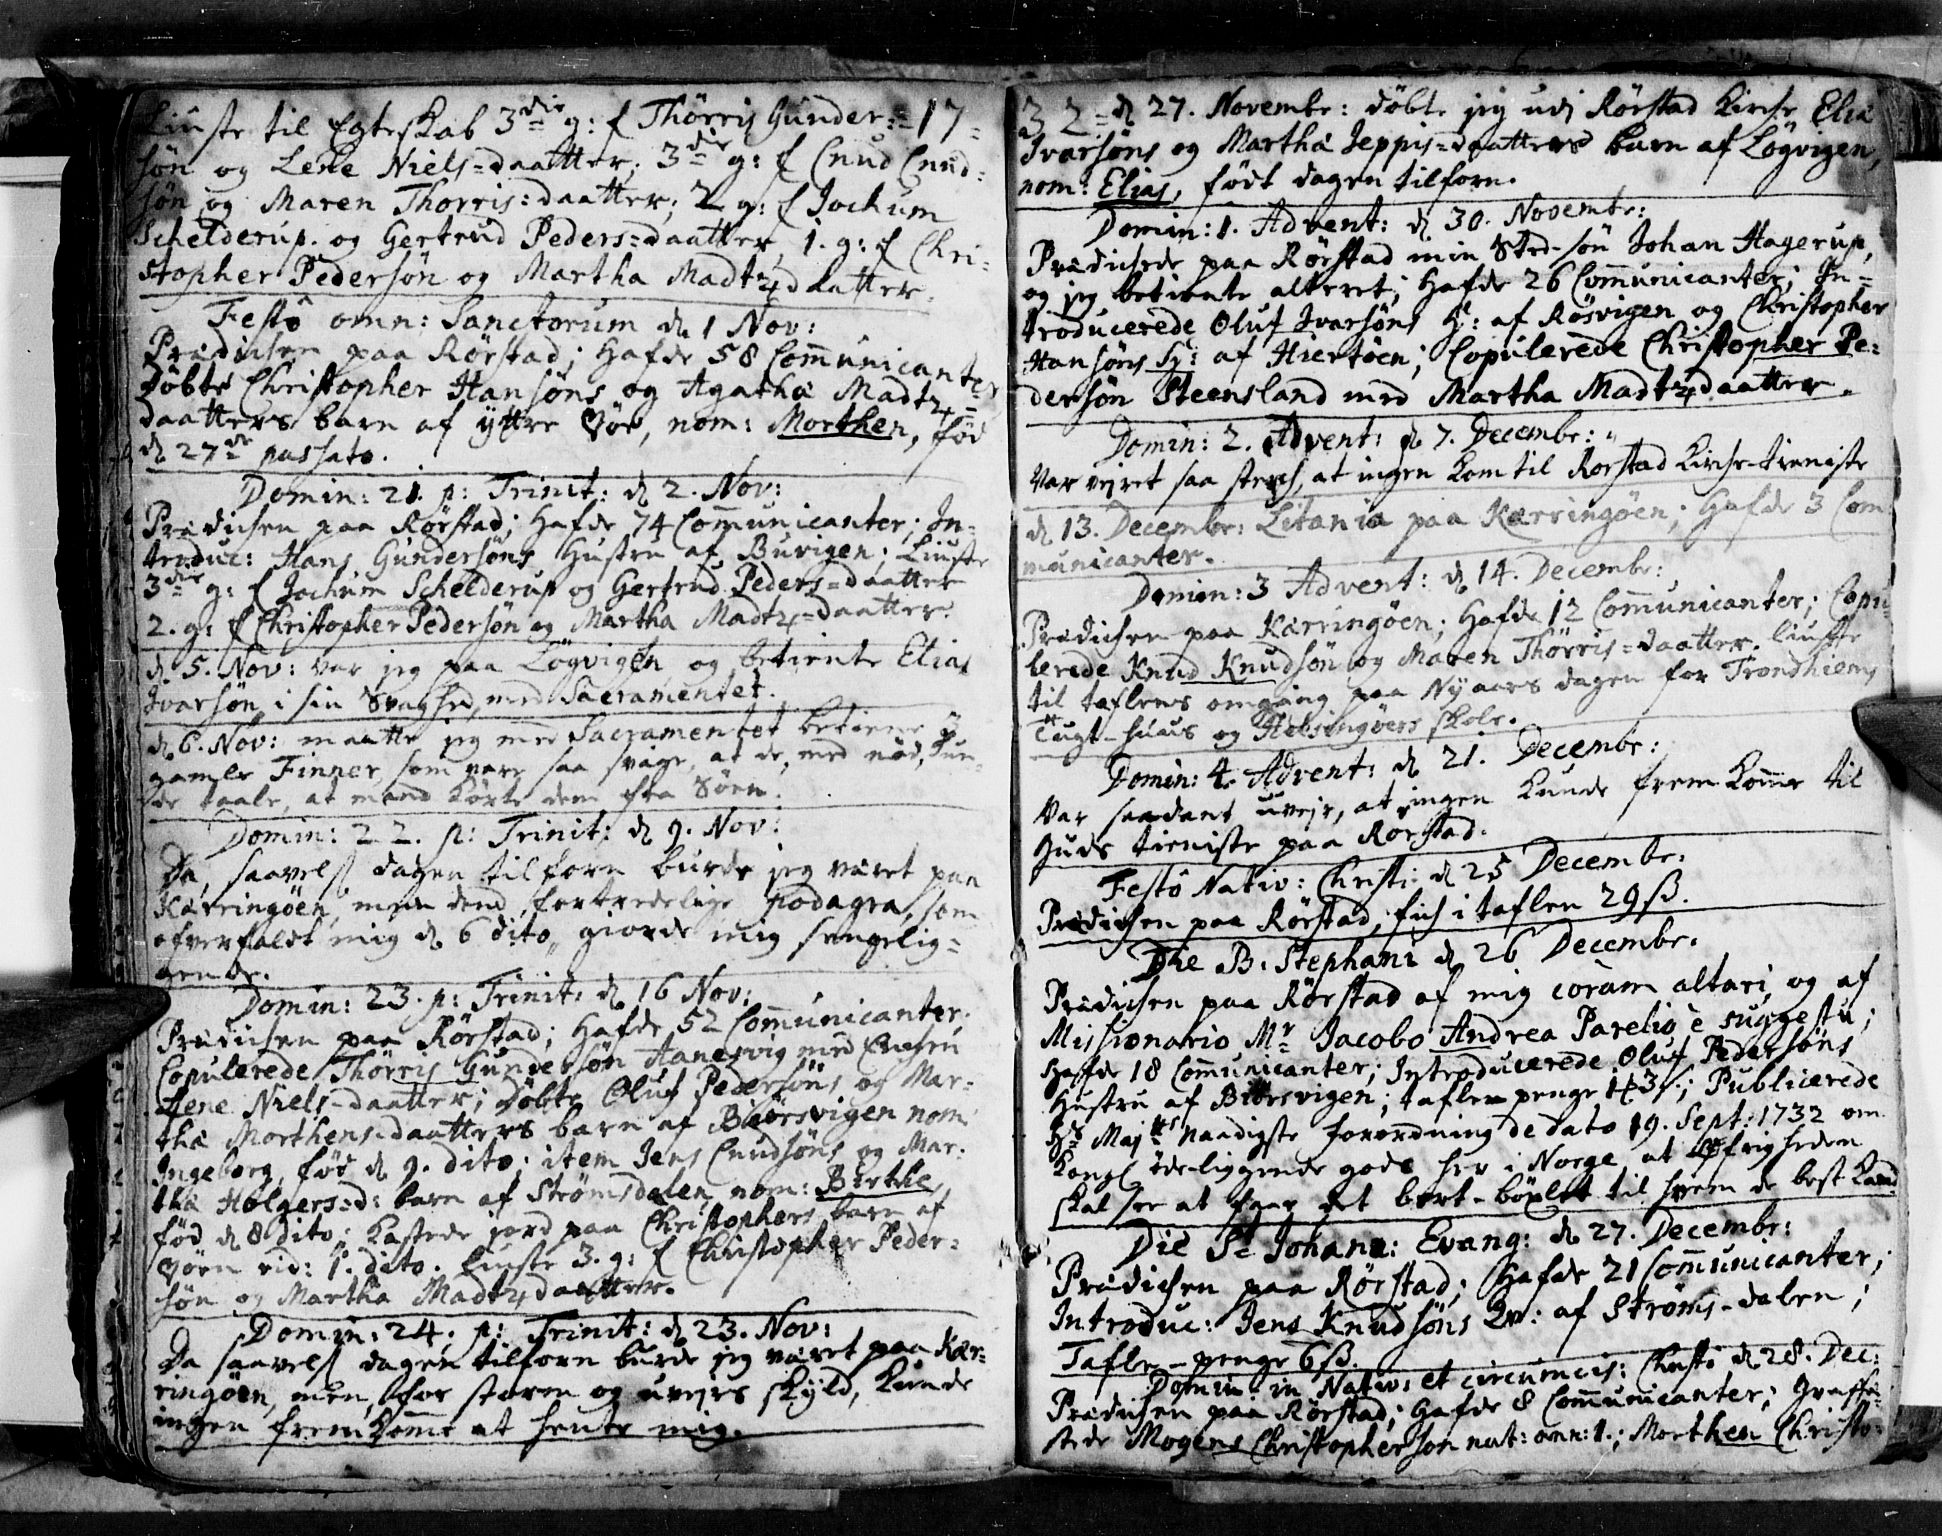 Liuste til Egteskab 3die g: f Thörris Gunder= 17=
sön og Lene Niels=daatter; 3die g: f Cnud Cnud=
sön og Maren Thorris=daatter; 2 g: f Jochum
Schelderup. og Gertrud Peders=daatter, 1. g: f Chri=
stopher Pedersön og Martha Madtz daatter.
Festô omn: Sanctorum d. 1 Nov:
Prædichen paa Rörstad; Hafde 58 Communicanter
Döbte Christopher Hansöns og Agatha Madtz=
daatters barn af yttre Vöe, nom: Morthen, föd
d. 27de passato.
Domin: 21. p: Trinit: d. 2. Nov:
Prædichen paa Rörstad; Hafde 74 Communicanter; In=
troduc: Hans Gundersöns Hustru af Buvigen; Liuste
3die g: f Jochum Schelderup og Gertrud Peders=daatter
2. g: f Christopher Pedersön og Martha Madtz=daatter.
d. 5. Nov: var jeg paa Lögvigen og betiente Elias
Ivarsön i sin Svaghed, med Sacramentet.
d. 6. Nov: maatte jeg med Sacramentet betiene 3
gamle Finner, som vare saa svage, at de, med nöd, kun=
de taale, at mand körte dem fra Söen.
Domin: 22. p: Trinit: d. 9. Nov:
Da, saavels dagen tilforn burde jeg været paa
Kærringöen, men dend fortredelige podagra, som
ofverfaldt mig d. 6 dito, giorde mig sengelig=
gende.
Domin: 23. p: Trinit: d. 16 Nov:
Prædichen paa Rörstad; Hafde 52 Communicanter.
Copulerede Thörris Gundersön Aanesvig med Enchen
Lene Niels-daatter; Döbte Oluf Pedersöns og Mar=
tha Morthens=daatters barn af Biörsvigen nom:
Ingeborg, föd d. 9. dito; item Jens Cnudsöns og Mar=
tha Holgers=d: barn af Strömsdalen, nom: Birthe,
föd d. 8 dito; Kastede jord paa Christophers barn af
Vöen vid: 1. dito. Liuste 3. g: f Christopher Peder=
sön og Martha Madtz daatter.
Domin: 24. p: Trinit: d. 23. Nov:
Da saavels dagen tilforn burde jeg været paa Kær=
ringöen, men, for storm og uvejrs skyld, kunde
ingen fremkomme at hente mig.
32= d. 27. Novembr: döbte jeg udj Rörstad Kirche Elia
Ivarsöns og Martha Jeppis=daatters barn af Lögvigen,
nom: Elias, födt dagen tilforn.
Domin: 1. Advent: d. 30. Novembr:
Prædichede paa Rörstad min Sted-sön Johan Hagerup,
og jeg betiente alteret; Hafde 26 Communicanter; In=
troducerede Oluf Ivarsöns H: af Rösvigen og Christopher
Hansöns H: af Hiertöen; Copulerede Christopher Pe=
dersön Steensland med Martha Madtz daatter.
Domin: 2. Advent: d. 7. Decembr:
Var vejret saa sterch, at ingen kom til Rorstad Kirche-tieniste
d. 13. Decembr: Litania paa Kærringöen; Hafde 3 Com
municanter.
Domin: 3 Advent: d. 14. Decembr:
Prædichen paa Kærringöen; Hafde 12 Communicanter; Copu=
lerede Knud Knudsön og Maren Thörris=daatter. liuste
til taflens omgang paa Nyaars dagen for Trondhiems
Tugt-huus og Helsingöers skole.
Domin: 4. Advent: d. 21. Decembr:
Var saadant uvejr, at ingen kunde fremkomme til
Guds tieniste paa Rorstad.
Festô Nativ: Christi d. 25 Decembr:
Prædichen paa Rörstad, fich i taflen 29 ß.
Die B. Stephani d. 26 Decembr.
Prædichen paa Rörstad af mig coram altari, og af
Missionario Mr Jacobo Andrea Parelio è suggestu;
Hafde 18 Communicanter; Introducerede Oluf Pedersöns
Hustru af Biörsvigen; taflepenge 43 ß.; Publicerede
Hs Majts naadigste forordning de dato 19. Sept: 1732 om
Kongl öde-liggende gods her i Norge, at öfrigheden
skal see at faae det bort-böxlet til hvem de best kand
Die St Johann: Evang: d. 27. Decembr:
Prædichen paa Rörstad; Hafde 21 Communicanter;
Introduc: Jens Knudsöns Qv: af Ströms-dalen;
Tafle-penge 6 ß.
Domin: in Nativ: et circumcis: Christi d. 28. Dec:
Prædichen paa Rörstad; Hafde 8 Communicanter; Graffæ=
stede Mogens Christophersön nat: ann: 1.; Morthen Christo=